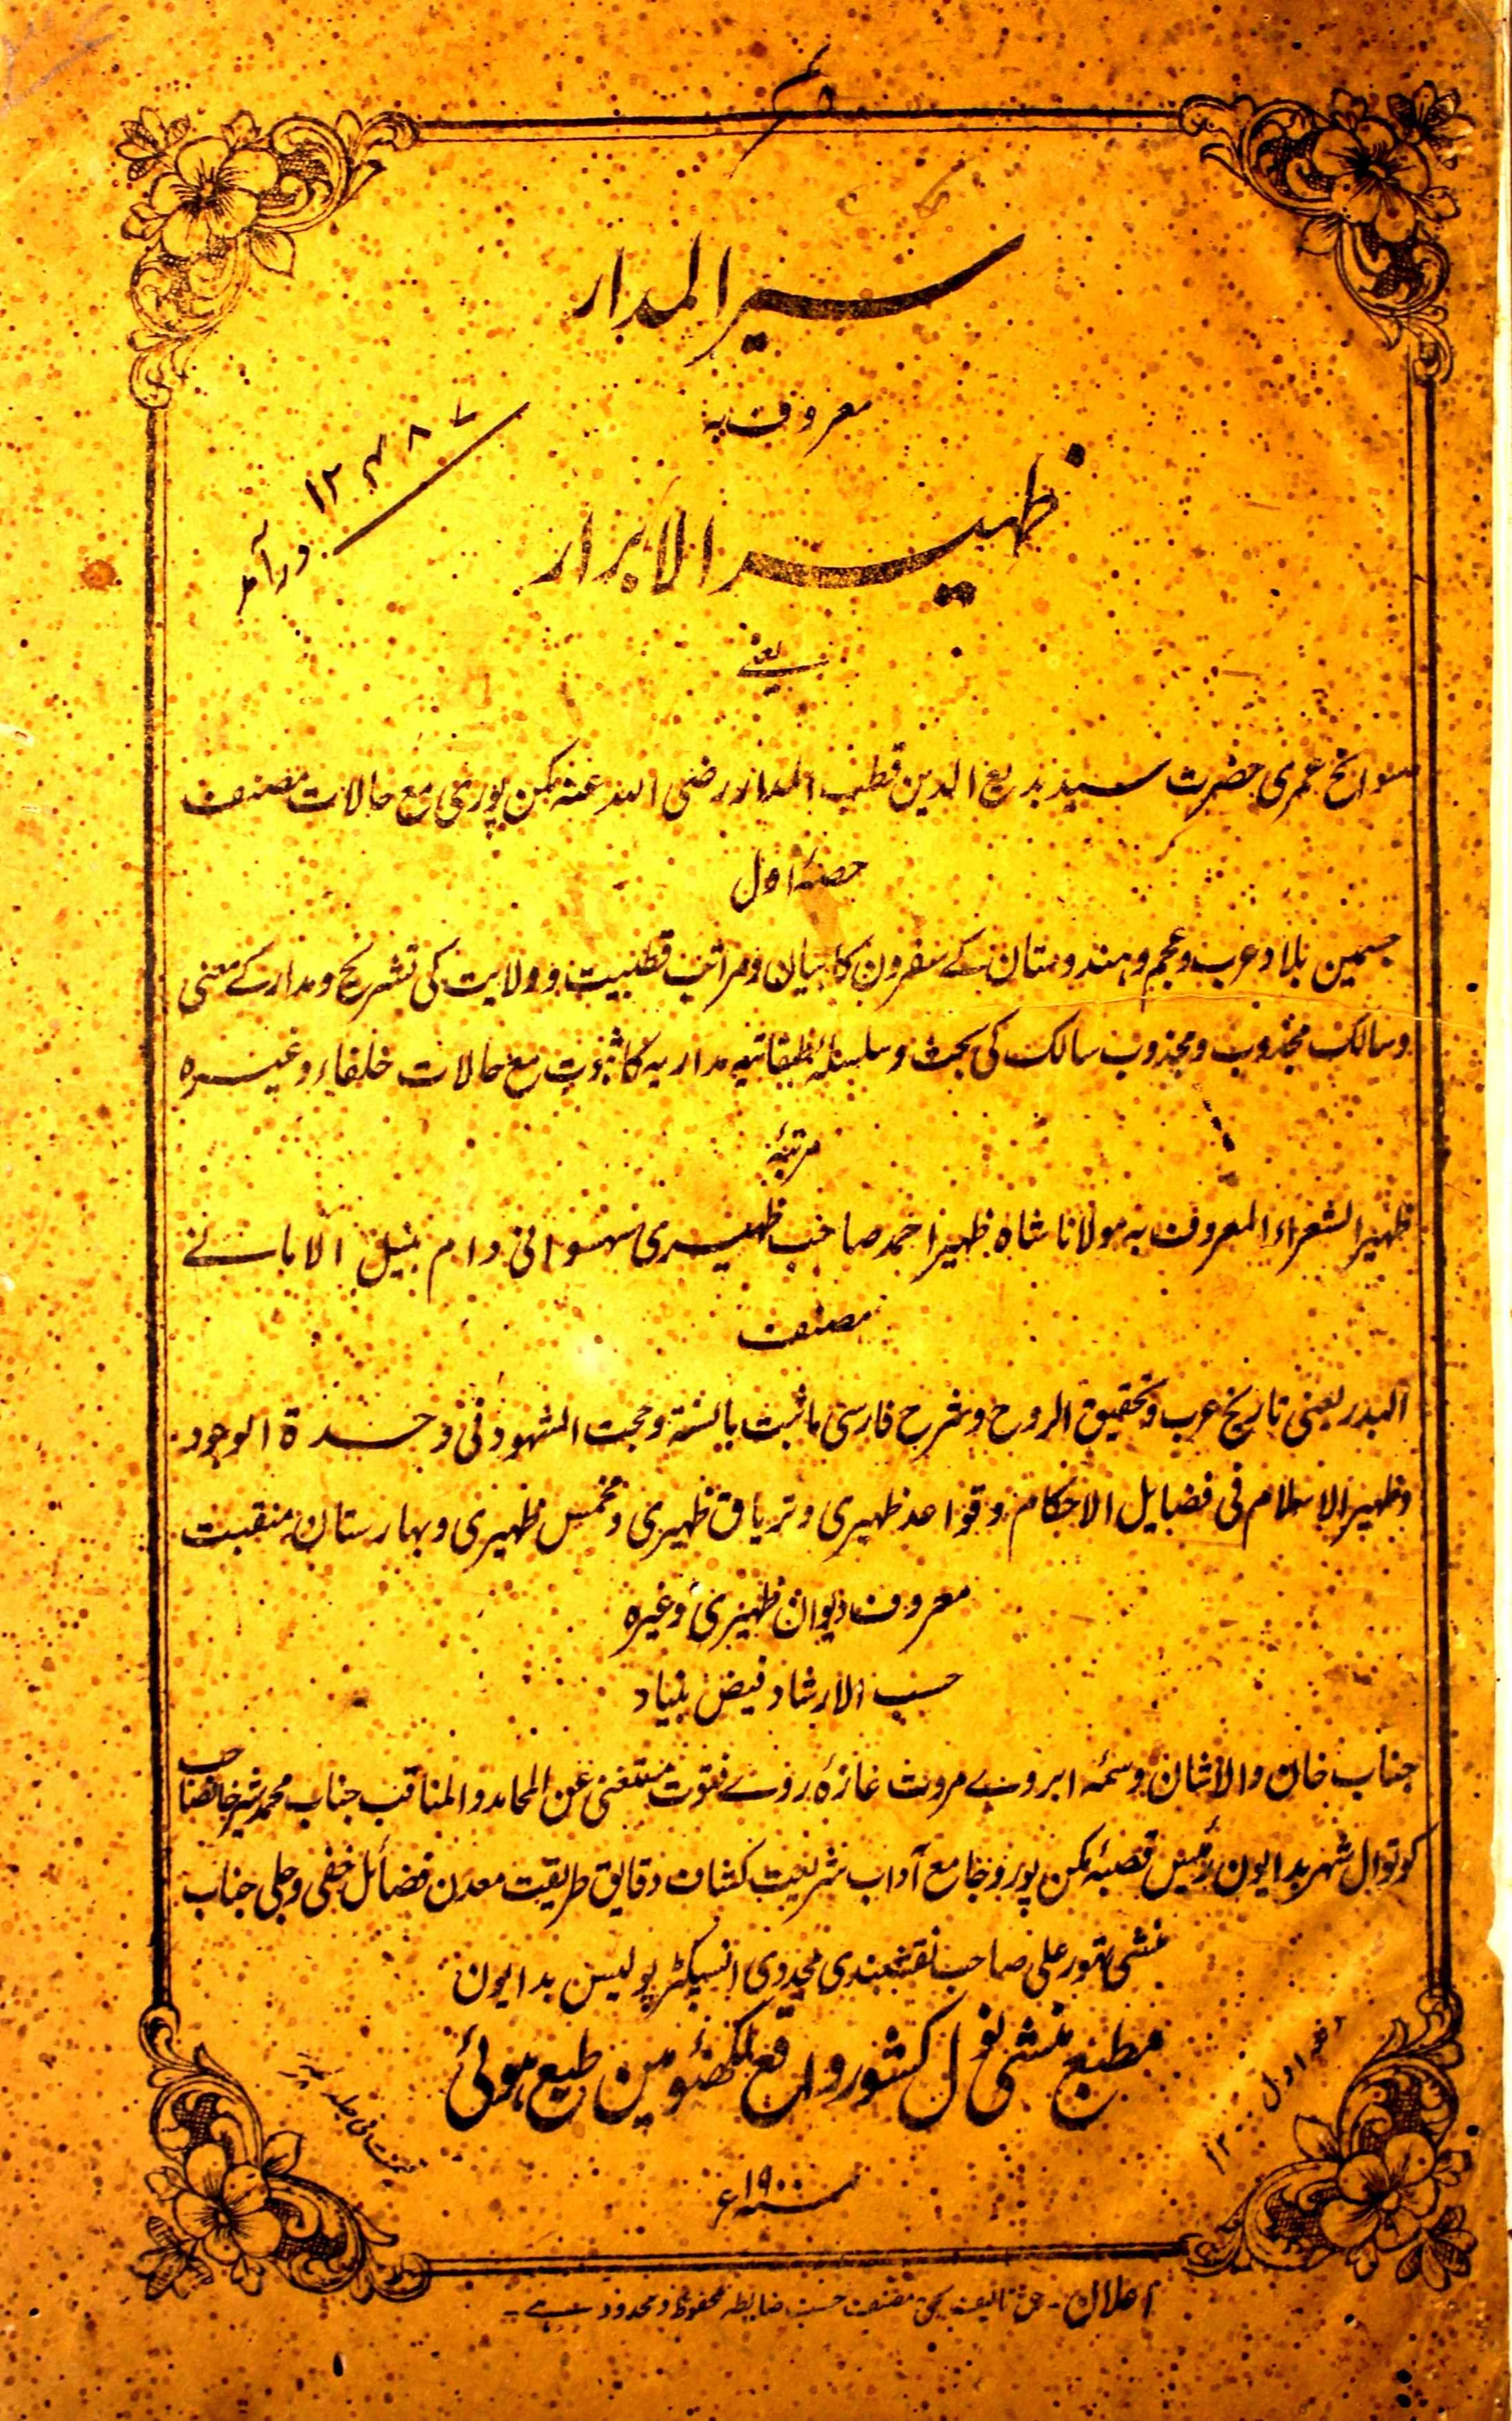 سیر المدار
معروف بہ
ظہیر الابرار
یعنے
سوانح عمری حضرت سید بدیع الدین قطب المدار رضی اللہ عنہ مکن پوری مع حالات مصنف
حصۂ اول
جسمین بلاد عرب و عجم و ہندوستان کے سفرون کا بیان و مراتب قطبیت و ولایت کی تشریح و مدار کے معنی
و سالک مجذوب و مجذوب سالک کی بحث و سلسلۂ طیفاتیہ مداریہ کا ثبوت مع حالات خلفاء وغیرہ
مرتبۂ
ظہیر الشعراء المعروف بہ مولانا شاہ ظہیر احمد صاحب ظہیری سہسوانی دام بنیل الامانے
مصنف
البدر یعنی تاریخ عرب و تحقیق الروح و شرح فارسی ماثبت بالسنۃ و حجت المشہود فی وحدۃ الوجود
و ظہیر الاسلام فی فضایل الاحکام و قواعد ظہیری و تریاق ظہیری و مخمس ظہیری و بہارستان منقبت
معروف دیوان ظہیری وغیرہ
حسب الارشاد فیض بنیاد
جناب خان والاشان وسمہ ابروے مروت غازۂ روے فتوت مستغنی عن المحامد والمناقب جناب محمد شیر خانصاحب
کوتوال شہر بدایون رئیس قصبۂ مکن پور و جامع آداب شریعت کشاف دقایق طریقت معدن فضائل خفی و جلی جناب
منشی تہور علی صاحب نقشبندی مجددی انسپکٹر پولیس بدایون
مطبع منشی نول کشور واقع لکھنؤ مین طبع ہوئی
سنہ ۱۹۰۰ء
اعلان - حق تالیف بحق مصنف حسب ضابطہ محفوظ و محدود ہے -